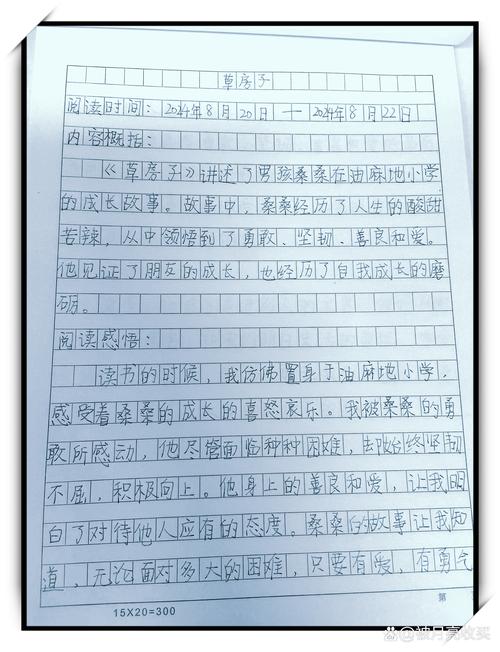 草房子
阅读时间：2024年8月20日—2024年8月22日
内容概括：
《草房子》讲述了男孩桑桑在油麻地小学
的成长故事。故事中，桑桑经历了人生的酸甜
苦辣，从中领悟到了勇敢、坚韧、善良和爱。
他见证了朋友的成长，也经历了自我成长的磨
砺。
阅读感悟：
读书的时候，我仿佛置身于油麻地小学，
感受着桑桑的成长的喜怒哀乐。我被桑桑的勇
敢所感动，他尽管面临种种困难，却始终坚韧
不屈，积极向上。他身上的善良和爱，让我明
白了对待他人应有的态度。桑桑的故事让我知
道，无论面对多大的困难，只要有爱，有勇气
15X20=300
第
@被月亮收买